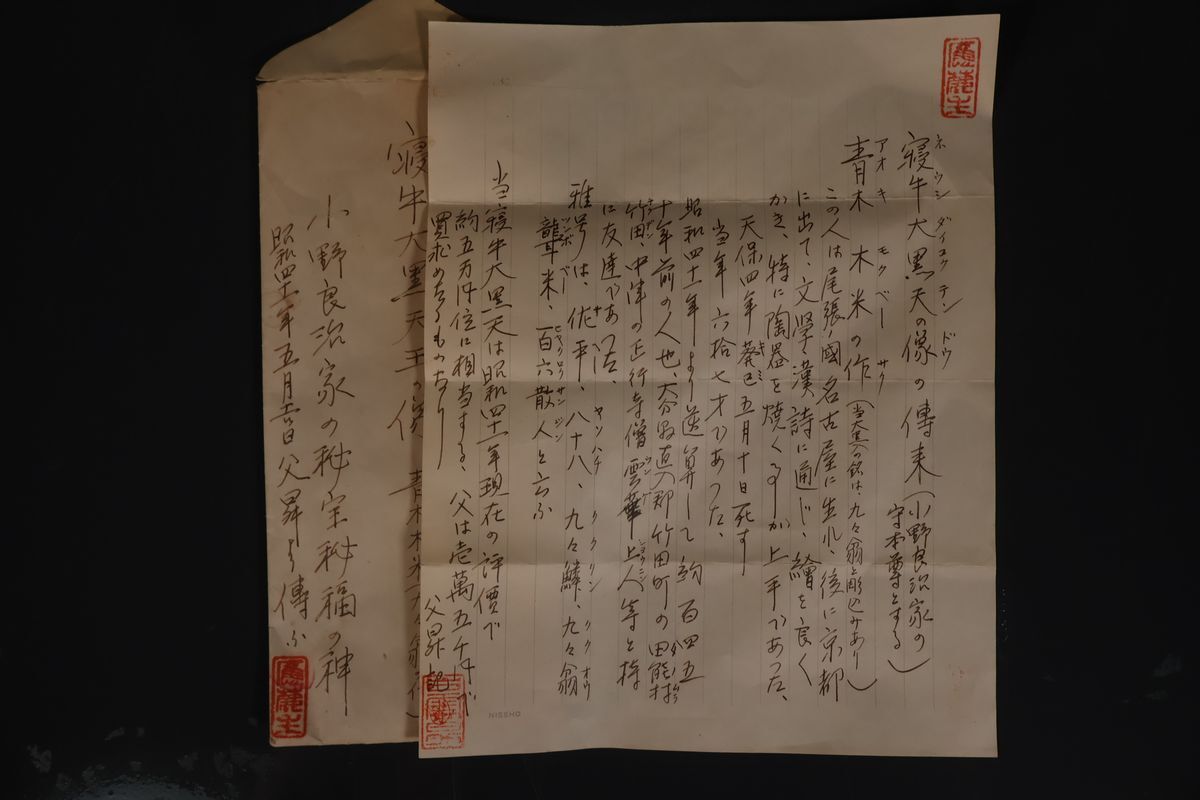 寝牛大黒天の像の傳来(小野良治家の
守本尊とする)
ネウシダイコクテンドウ
青木木米の作(当大黒の銘は、九々翁と彫込みあり)
アオキモクベーサク
この人は尾張ノ國名古屋に生れ、後に京都
に出て、文學、漢詩に通じ、繪を良く
かき、特に陶器を焼くるが上手であつた、
天保四年葵巳五月十日死す
当年六拾七才であつた、
昭和四十一年より逆算して約百四五
十年前の人也、大分縣直入郡竹田町の田能村
竹田、中津の正行寺僧雲華上人等と特
に友達であつた、
雅号は、佐平、八十八、九々鱗、九々翁
ヤソハチ
ククリン
ククオウ
聾米、百六散人と云ふ
ツンボベー
ヒャクロクサンジン
当寝牛大黒天は昭和四十一年現在の評價で
約五万円位に相当する、父は壱萬五千円で
買求めたるものなり
父昇記
NISSHO
寝牛大黒天王の
小野良治家の秘宝秘福の神
父昇より傳ふ